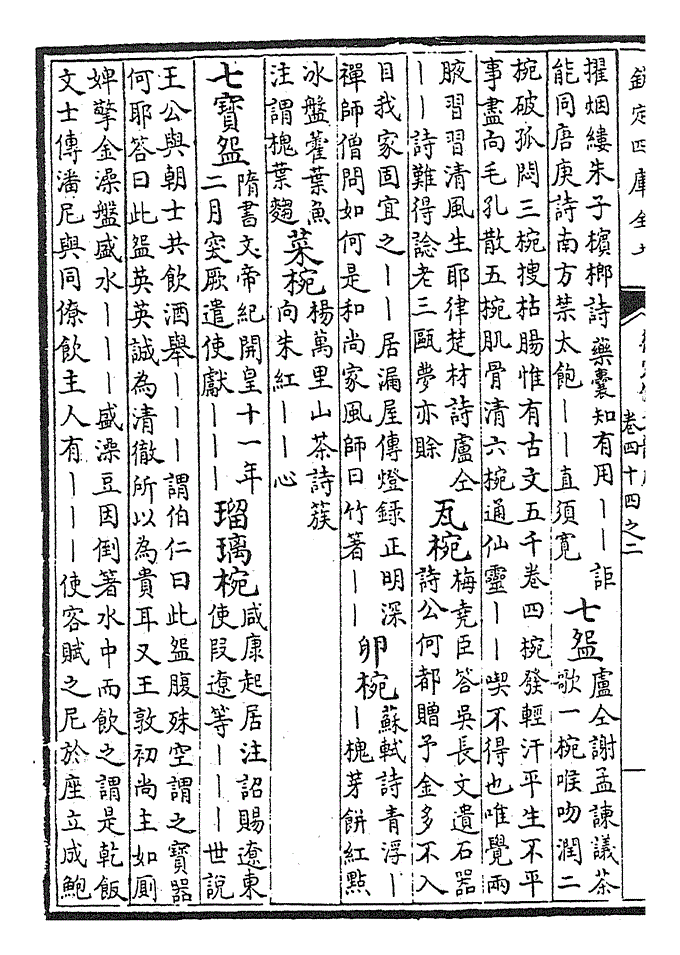 欽定四庫全
卷四十四之二
擢烟縷朱子檳榔詩藥囊知有用丨丨詎
能同唐庚詩南方禁太飽丨丨直須寬
七盌
盧仝謝孟諫議茶
歌一椀喉吻潤二
椀破孤悶三椀搜枯腸惟有古文五千卷四椀發輕汗平生不平
事盡向毛孔散五椀肌骨清六椀通仙靈丨丨喫不得也唯覺兩
腋習習清風生耶律楚材詩盧仝
丨丨詩難得諗老三甌夢亦賖
瓦椀
梅堯臣答吳長文遺石器
詩公何都贈予金多不入
目我家固宜之丨丨居漏屋傳燈錄正明深
禪師僧問如何是和尚家風師曰竹著丨丨
卵椀
蘇軾詩青浮丨
丨槐芽餅紅點
冰盤藿葉魚
注謂槐葉麪
菜椀
楊萬里山茶詩蔟
向朱紅丨丨心
七寶盌
隋書文帝紀開皇十一年
二月突厥遣使獻丨丨丨
瑠璃椀
咸康起居注詔賜遼東
使叚遼等丨丨丨世說
王公與朝士共飲酒舉丨丨丨謂伯仁曰此盌腹殊空謂之寶器
何耶答曰此盌英英誠為清徹所以為貴耳又王敦初尚主如厠
婢擎金澡盤盛水丨丨丨盛澡豆因倒著水中而飲之謂是乾飯
文士傳潘尼與同僚飲主人有丨丨丨使客賦之尼於座立成鮑